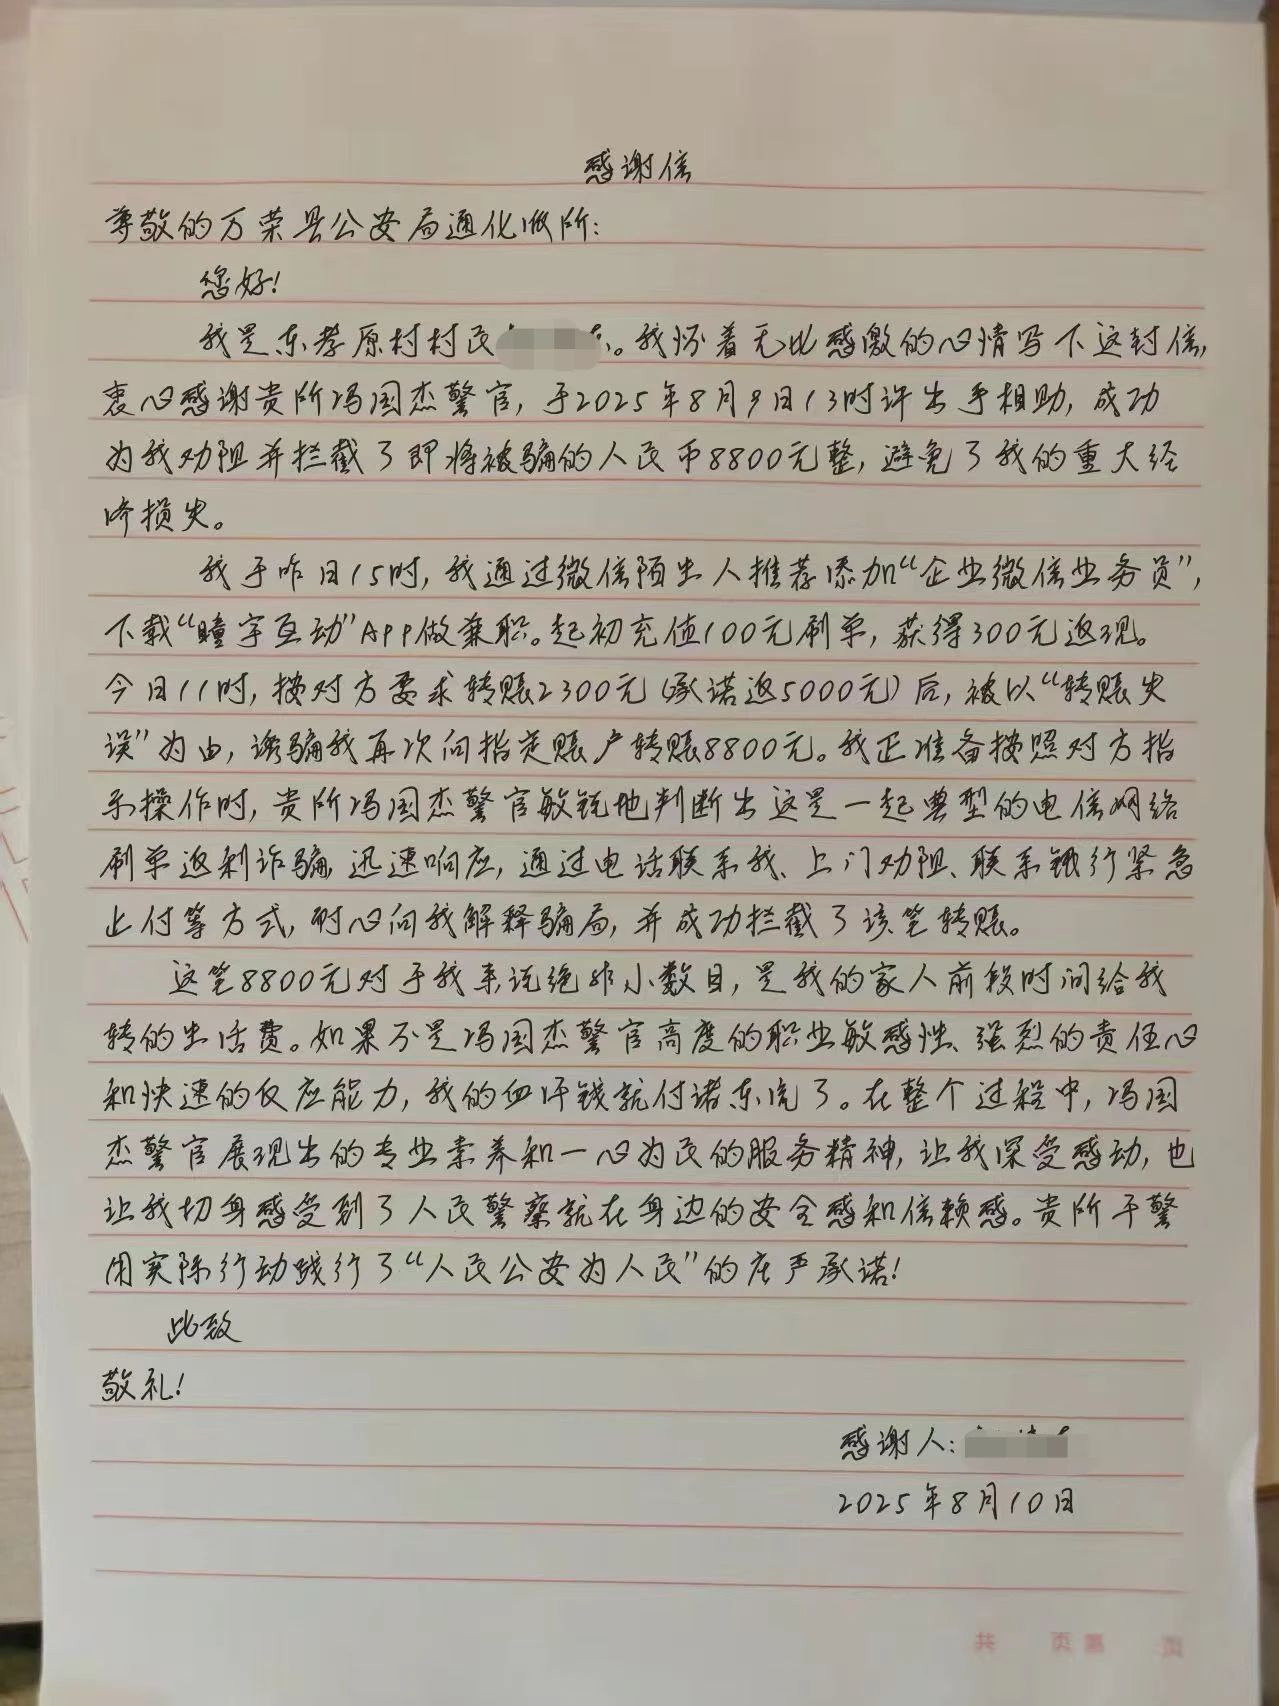 感谢信
尊敬的万荣县公安局通化派所:
您好!
我是东孝原村村民。我怀着无比感激的心情写下这封信,
衷心感谢贵所冯国杰警官,于2025年8月9日13时许出手相助,成功
为我劝阻并拦截了即将被骗的人民币8800元整,避免了我的重大经
济损失。
我于昨日15时,我通过微信陌生人推荐添加“企业微信业务员”,
下载“瞳宇互动”App做兼职。起初充值100元刷单,获得300元返现。
今日11时,按对方要求转账2300元(承诺返5000元)后,被以“转账失
误”为由,诱骗我再次向指定账户转账8800元。我正准备按照对方指
示操作时,贵所冯国杰警官敏锐地判断出这是一起典型的电信网络
刷单返利诈骗,迅速响应,通过电话联系我、上门劝阻、联系银行紧急
止付等方式,耐心向我解释骗局,并成功拦截了该笔转账。
这笔8800元对于我来说绝非小数目,是我的家人前段时间给我
转的生活费。如果不是冯国杰警官高度的职业敏感性、强烈的责任心
和快速的反应能力,我的血汗钱就付诸东流了。在整个过程中,冯国
杰警官展现出的专业素养和一心为民的服务精神,让我深受感动,也
让我切身感受到了人民警察就在身边的安全感和信赖感。贵所干警
用实际行动践行了“人民公安为人民”的庄严承诺!
此致
敬礼!
感谢人:
2025年8月10日
共 页 第 页